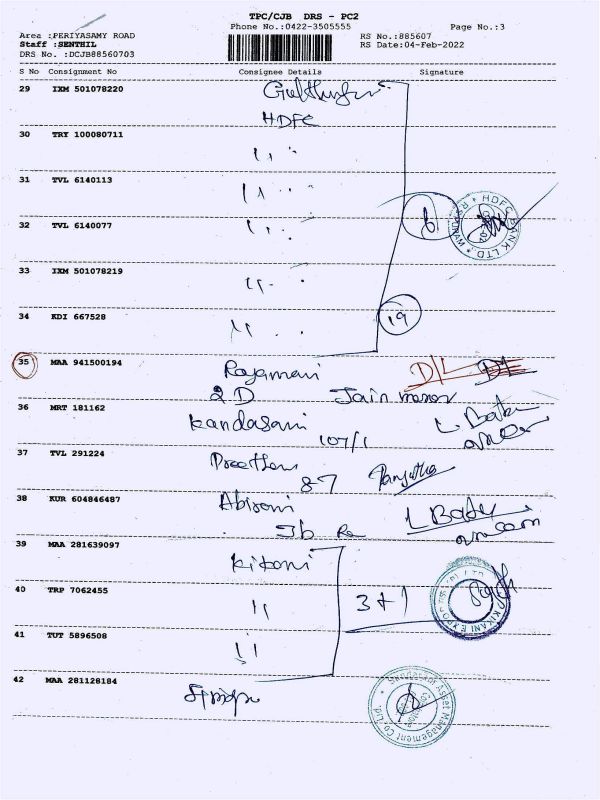 TPC/CJB DRS - PC2
Phone No.:0422-3505555
Page No.:3
Area :PERIYASAMY ROAD
Staff :SENTHIL
DRS No. :DCJB88560703
RS No.:885607
RS Date:04-Feb-2022
S No Consignment No Consignee Details Signature
29 IXM 501078220
HDFC
30 TRY 100080711 ,, ,,
31 TVL 6140113 ,, ,,
32 TVL 6140077 ,, ,,
6
HDFC BANK LTD
33 IXM 501078219 ,, ,,
34 KDI 667528 ,, ,,
19
35 MAA 941500194 Rajamani D/L
2D Jain manor
36 MRT 181162 Kandasami
107/1
37 TVL 291224
87
38 KUR 604846487 Abirami
39 MAA 281639097 Kikani
40 TRP 7062455 ,,
3+1
KIKANI EXPO
41 TUT 5896508 ,,
42 MAA 281128184
Asset Management Co.